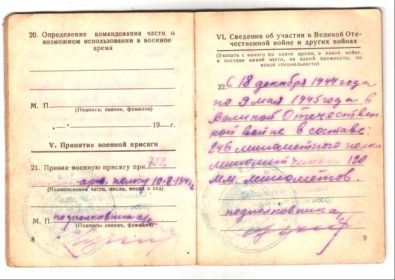 20. Определение командования части о
возможном использовании в военное
время
М. П.
(Подпись: звание, фамилия)
„—“ 19—г.
V. Принятие военной присяги
21. Принял военную присягу при 753
арт. полку 10.8.1941г.
(Наименование части, число, месяц и год)
М. П. подполковник а/с
(Подпись: звание, фамилия)
8
VI. Сведения об участии в Великой Оте-
чественной войне и других войнах
(Указать с какого по какое время, в какой войне,
в составе какой части, на какой должности, по
какой специальности)
22. С 18 декабря 1944 года
по 9 мая 1945 года в
Великой Отечествен
ной войне в составе:
246 минометного полка
минометчиком 120
м.м. минометов.
подполковник а/с
9